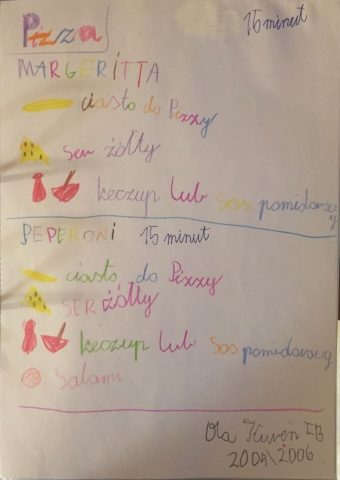 Pizza 15 minut
MARGERITTA
ciasto do Pizzy
ser żółty
keczup lub sos pomidorowy
PEPERONI 15 minut
ciasto do Pizzy
SER żółty
keczup lub sos pomidorowy
Salami
Ola IB
2004\2006